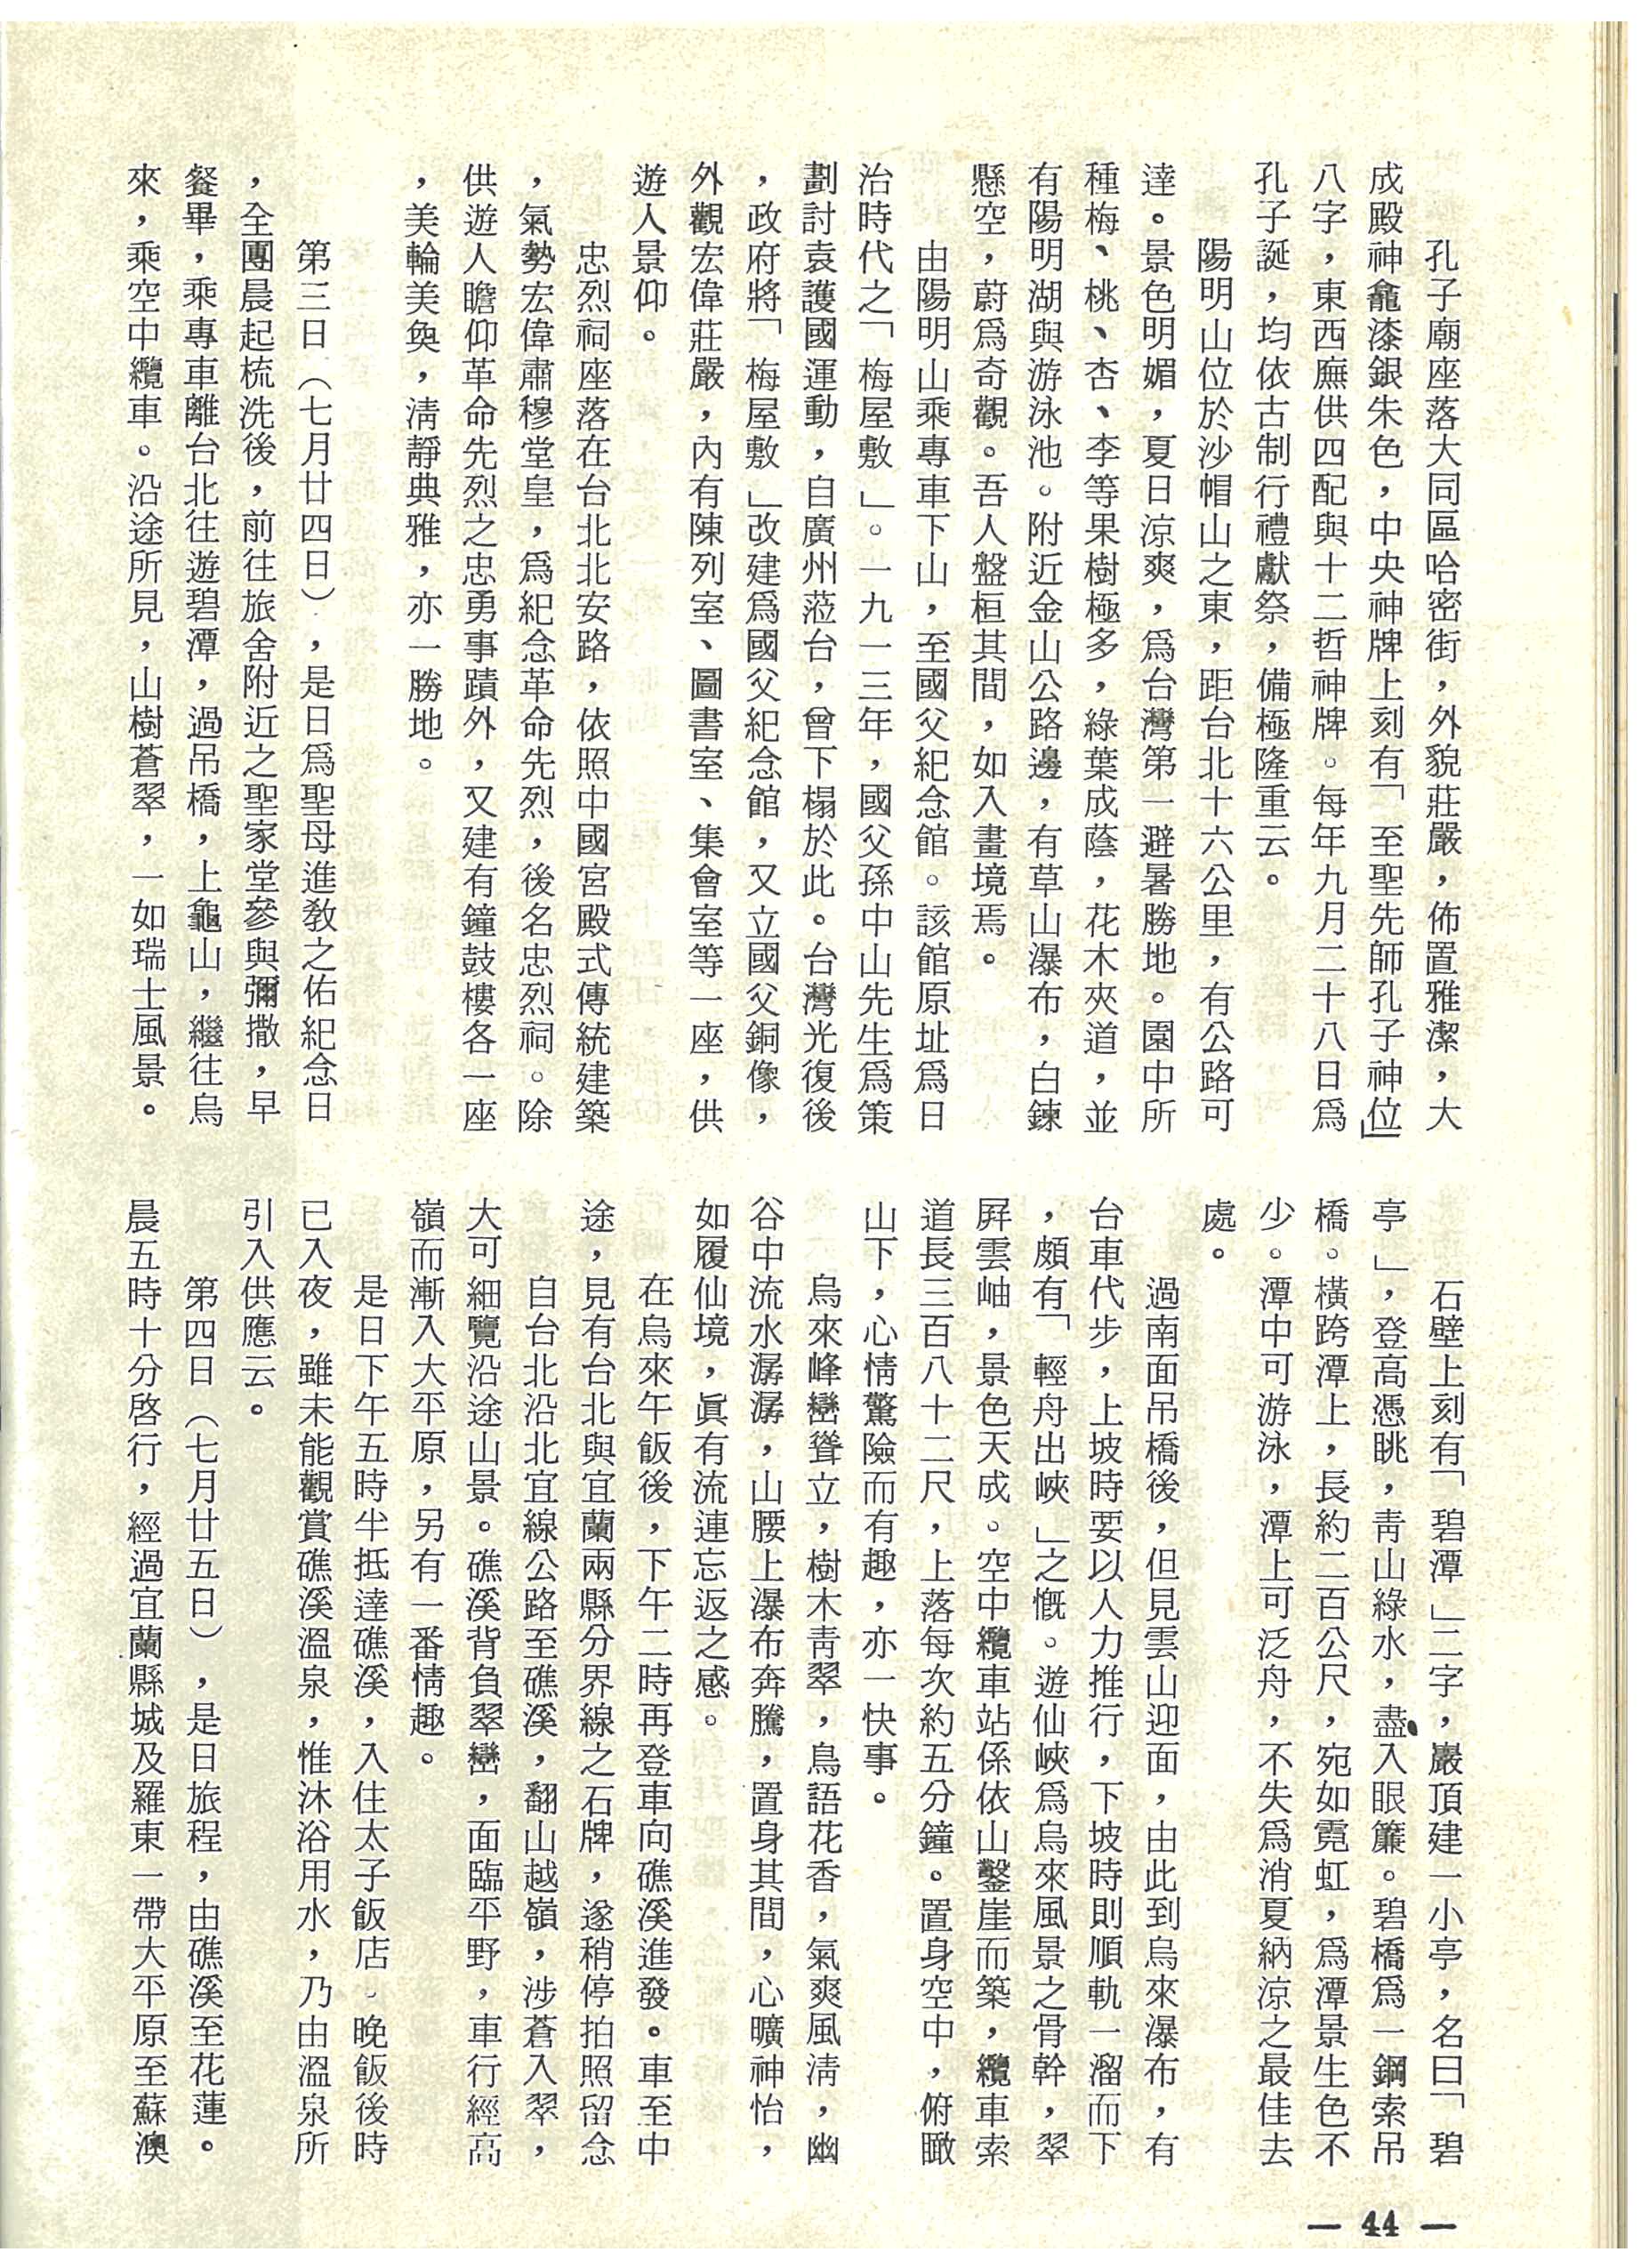 孔子廟座落大同區哈密街，外貌莊嚴，佈置雅潔，大
成殿神龕漆銀朱色，中央神牌上刻有「至聖先師孔子神位」
八字，東西廡供四配與十二哲神牌。每年九月二十八日爲
孔子誕，均依古制行禮獻祭，備極隆重云。
陽明山位於沙帽山之東，距台北十六公里，有公路可
達。景色明媚，夏日涼爽，爲台灣第一避暑勝地。園中所
種梅、桃、杏、李等果樹極多，綠葉成蔭，花木夾道，並
有陽明湖與游泳池。附近金山公路邊，有草山瀑布，白鍊
懸空，蔚爲奇觀。吾人盤桓其間，如入畫境焉。
由陽明山乘專車下山，至國父紀念館。該館原址爲日
治時代之「梅屋敷」。一九一三年，國父孫中山先生爲策
劃討袁護國運動，自廣州蒞台，曾下榻於此。台灣光復後
，政府將「梅屋敷」改建爲國父紀念館，又立國父銅像，
外觀宏偉莊嚴，內有陳列室、圖書室、集會室等一座，供
遊人景仰。
忠烈祠座落在台北北安路，依照中國宮殿式傳統建築
，氣勢宏偉肅穆堂皇，爲紀念革命先烈，後名忠烈祠。除
供遊人瞻仰革命先烈之忠勇事蹟外，又建有鐘鼓樓各一座
，美輪美奐，淸靜典雅，亦一勝地。
第三日（七月廿四日），是日爲聖母進教之佑紀念日
，全團晨起梳洗後，前往旅舍附近之聖家堂參與彌撒，早
餐畢，乘專車離台北往遊碧潭，過吊橋，上龜山，繼往烏
來，乘空中纜車。沿途所見，山樹蒼翠，一如瑞士風景。
石壁上刻有「碧潭」二字，巖頂建一小亭，名曰「碧
亭」，登高憑眺，靑山綠水，盡入眼簾。碧橋爲一鋼索吊
橋。橫跨潭上，長約二百公尺，宛如霓虹，爲潭景生色不
少。潭中可游泳，潭上可泛舟，不失爲消夏納涼之最佳去
處。
過南面吊橋後，但見雲山迎面，由此到烏來瀑布，有
台車代步，上坡時要以人力推行，下坡時則順軌一溜而下
，頗有「輕舟出峽」之慨。遊仙峽爲烏來風景之骨幹，翠
屛雲岫，景色天成。空中纜車站係依山鑿崖而築，纜車索
道長三百八十二尺，上落每次約五分鐘。置身空中，俯瞰
山下，心情驚險而有趣，亦一快事。
烏來峰巒聳立，樹木靑翠，鳥語花香，氣爽風淸，幽
谷中流水潺潺，山腰上瀑布奔騰，置身其間，心曠神怡，
如履仙境，眞有流連忘返之感。
在烏來午飯後，下午二時再登車向礁溪進發。車至中
途，見有台北與宜蘭兩縣分界線之石牌，遂稍停拍照留念
自台北沿北宜線公路至礁溪，翻山越嶺，涉蒼入翠，
大可細覽沿途山景。礁溪背負翠巒，面臨平野，車行經高
嶺而漸入大平原，另有一番情趣。
是日下午五時半抵達礁溪，入住太子飯店。晚飯後時
已入夜，雖未能觀賞礁溪溫泉，惟沐浴用水，乃由溫泉所
引入供應云。
第四日（七月廿五日），是日旅程，由礁溪至花蓮。
晨五時十分啓行，經過宜蘭縣城及羅東一帶大平原至蘇澳
— 44 —